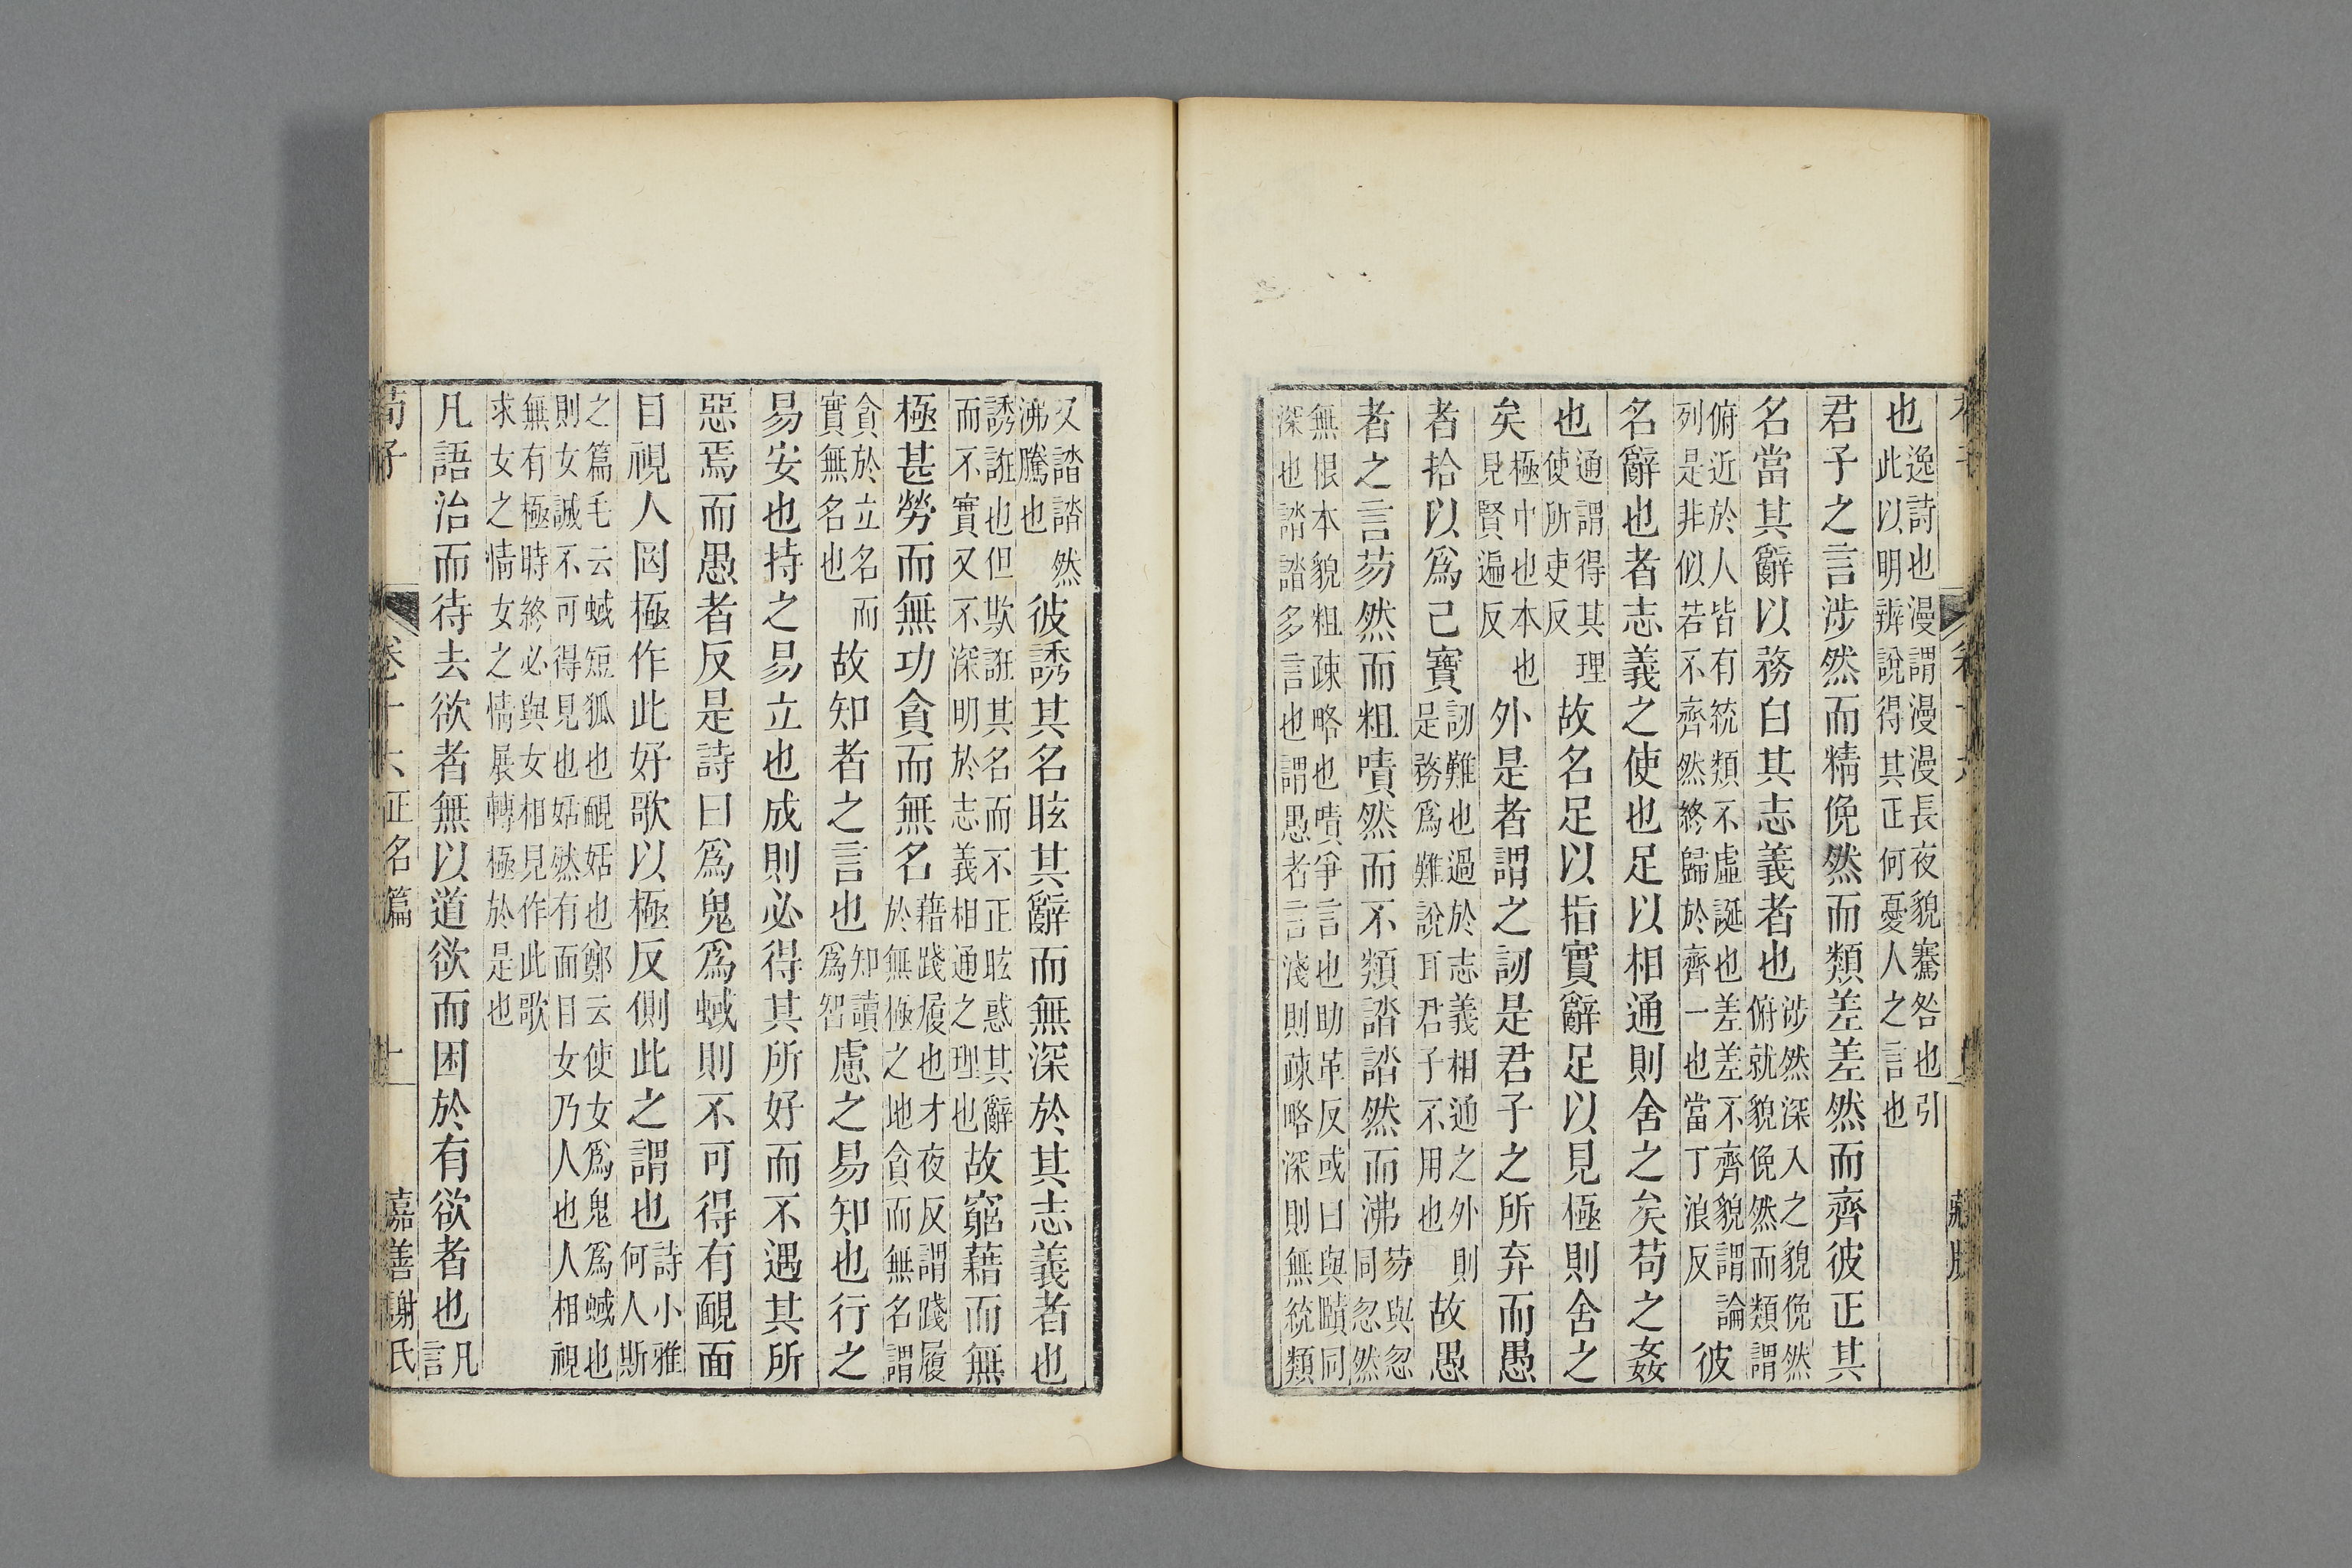 也逸詩也漫謂漫漫長夜貌騫咎也引此以明辨說得其正何憂人之言也
君子之言涉然而精俛然而類差差然而齊彼正其
名當其辭以務白其志義者也涉然深入之貌俛然俯就貌俛然而類謂
俯近於人皆有統類不虛誕也差差不齊貌謂論列是非似若不齊然終歸於齊一也當丁浪反彼
名辭也者志義之使也足以相通則舍之矣苟之姦
也通謂得其理使所吏反故名足以指實辭足以見極則舍之
矣極中也本也見賢遍反外是者謂之訒是君子之所弃而愚
者拾以爲己寶訒難也過於志義相通之外則是務爲難說耳君子不用也故愚
者之言芴然而粗嘖然而不類誻誻然而沸芴與忽同忽然
無恨本貌粗疎略也嘖爭言也助革反或曰與賾同深也誻誻多言也謂愚者言淺則疎略深則無統類
又誻誻然沸騰也彼誘其名眩其辭而無深於其志義者也
誘誑也但欺誑其名而不正眩惑其辭而不實又不深明於志義相通之理也故窮藉而無
極甚勞而無功貪而無名藉踐履也才夜反謂踐履於無極之地貪而無名謂
貪於立名而實無名也故知者之言也知讀爲智慮之易知也行之
易安也持之易立也成則必得其所好而不遇其所
惡焉而愚者反是詩曰爲鬼爲蜮則不可得有靦面
目視人罔極作此好歌以極反側此之謂也詩小雅何人斯
之篇毛云蜮短狐也靦姡也鄭云使女爲鬼爲蜮也則女誠不可得見也姡然有面目女乃人也人相視
無有極時終必與女相見作此歌求女之情女之情展轉極於是也
凡語治而待去欲者無以道欲而困於有欲者也凡言
荀子 卷十六正名篇 十一 嘉善謝氏